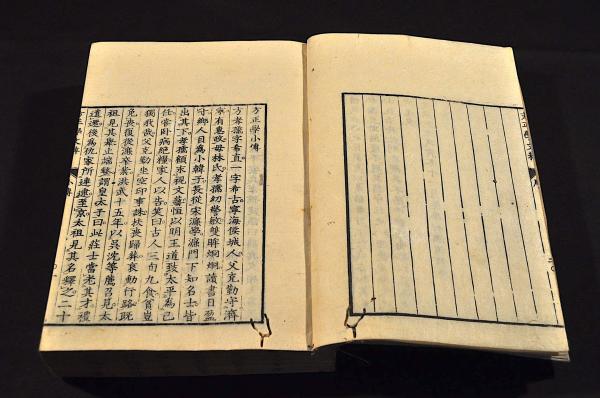 方正學小傳
方孝孺字希直一字希古寧海侯城人父克勤守濟
寧有惠政母林氏孝孺幼警敏雙眸烱烱讀書日盈
寸鄉人目爲小韓子長從宋濂學濂門下知名士皆
出其下孝孺顧末視文藝恒以明王道致太平爲己
任嘗臥病絶糧家人以告笑曰古人三旬九食貧豈
獨我哉父克勤坐空印事誅扶喪歸葬哀動行路既
免喪復從濂卒業洪武十五年以吳沉等薦召見太
祖見其舉止端整謂皇太子曰此莊士當老其才禮
遣還後爲仇家所連逮至京太祖見其名釋之二十